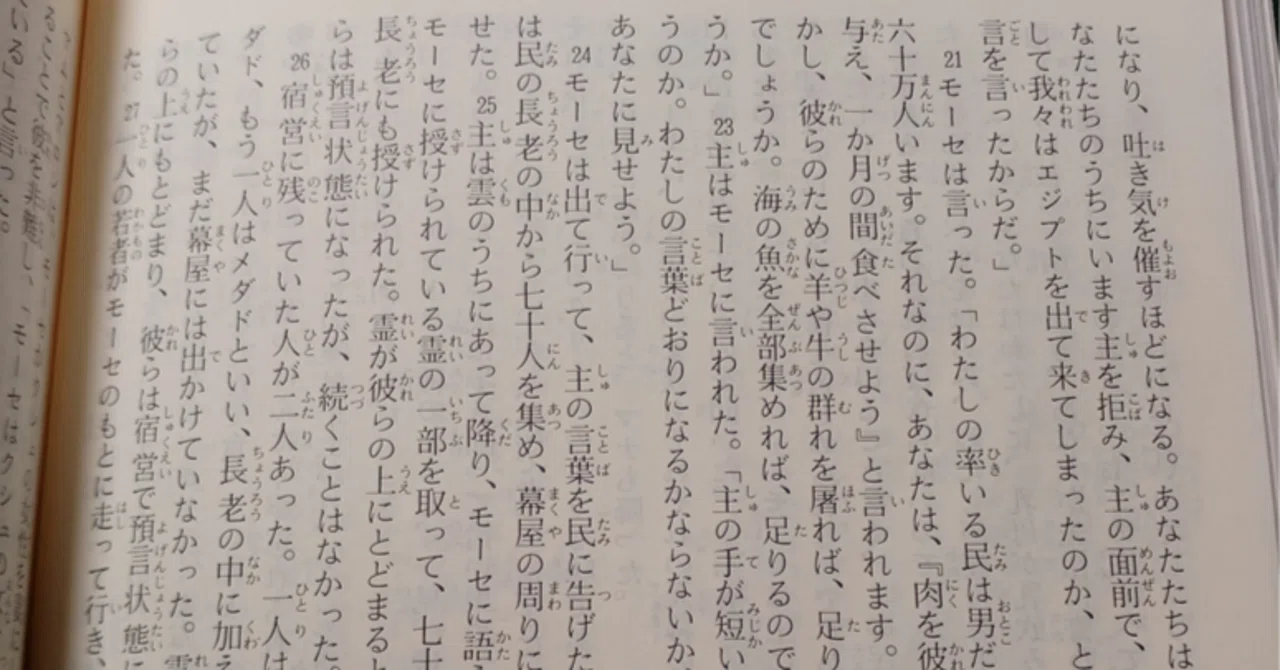 になり、吐き気を催すほどになる。あなたたちは
なたたちのうちにいます主を拒み、主の面前で、
して我々はエジプトを出て来てしまったのか、と
言を言ったからだ。」
21モーセは言った。「わたしの率いる民は男だ
六十万人います。それなのに、あなたは、『肉を彼
与え、一か月の間食べさせよう』と言われます。
かし、彼らのために羊や牛の群れを屠れば、足り
でしょうか。海の魚を全部集めれば、足りるので
うか。」23主はモーセに言われた。「主の手が短い
うのか。わたしの言葉どおりになるかならないか、
あなたに見せよう。」
24モーセは出て行って、主の言葉を民に告げた
は民の長老の中から七十人を集め、幕屋の周りに
せた。25主は雲のうちにあって降り、モーセに語
モーセに授けられている霊の一部を取って、七十
長老にも授けられた。霊が彼らの上にとどまると
らは預言状態になったが、続くことはなかった。
26宿営に残っていた人が二人あった。一人は
ダド、もう一人はメダドといい、長老の中に加え
ていたが、まだ幕屋には出かけていなかった。霊
らの上にもとどまり、彼らは宿営で預言状態に
た。27一人の若者がモーセのもとに走って行き、